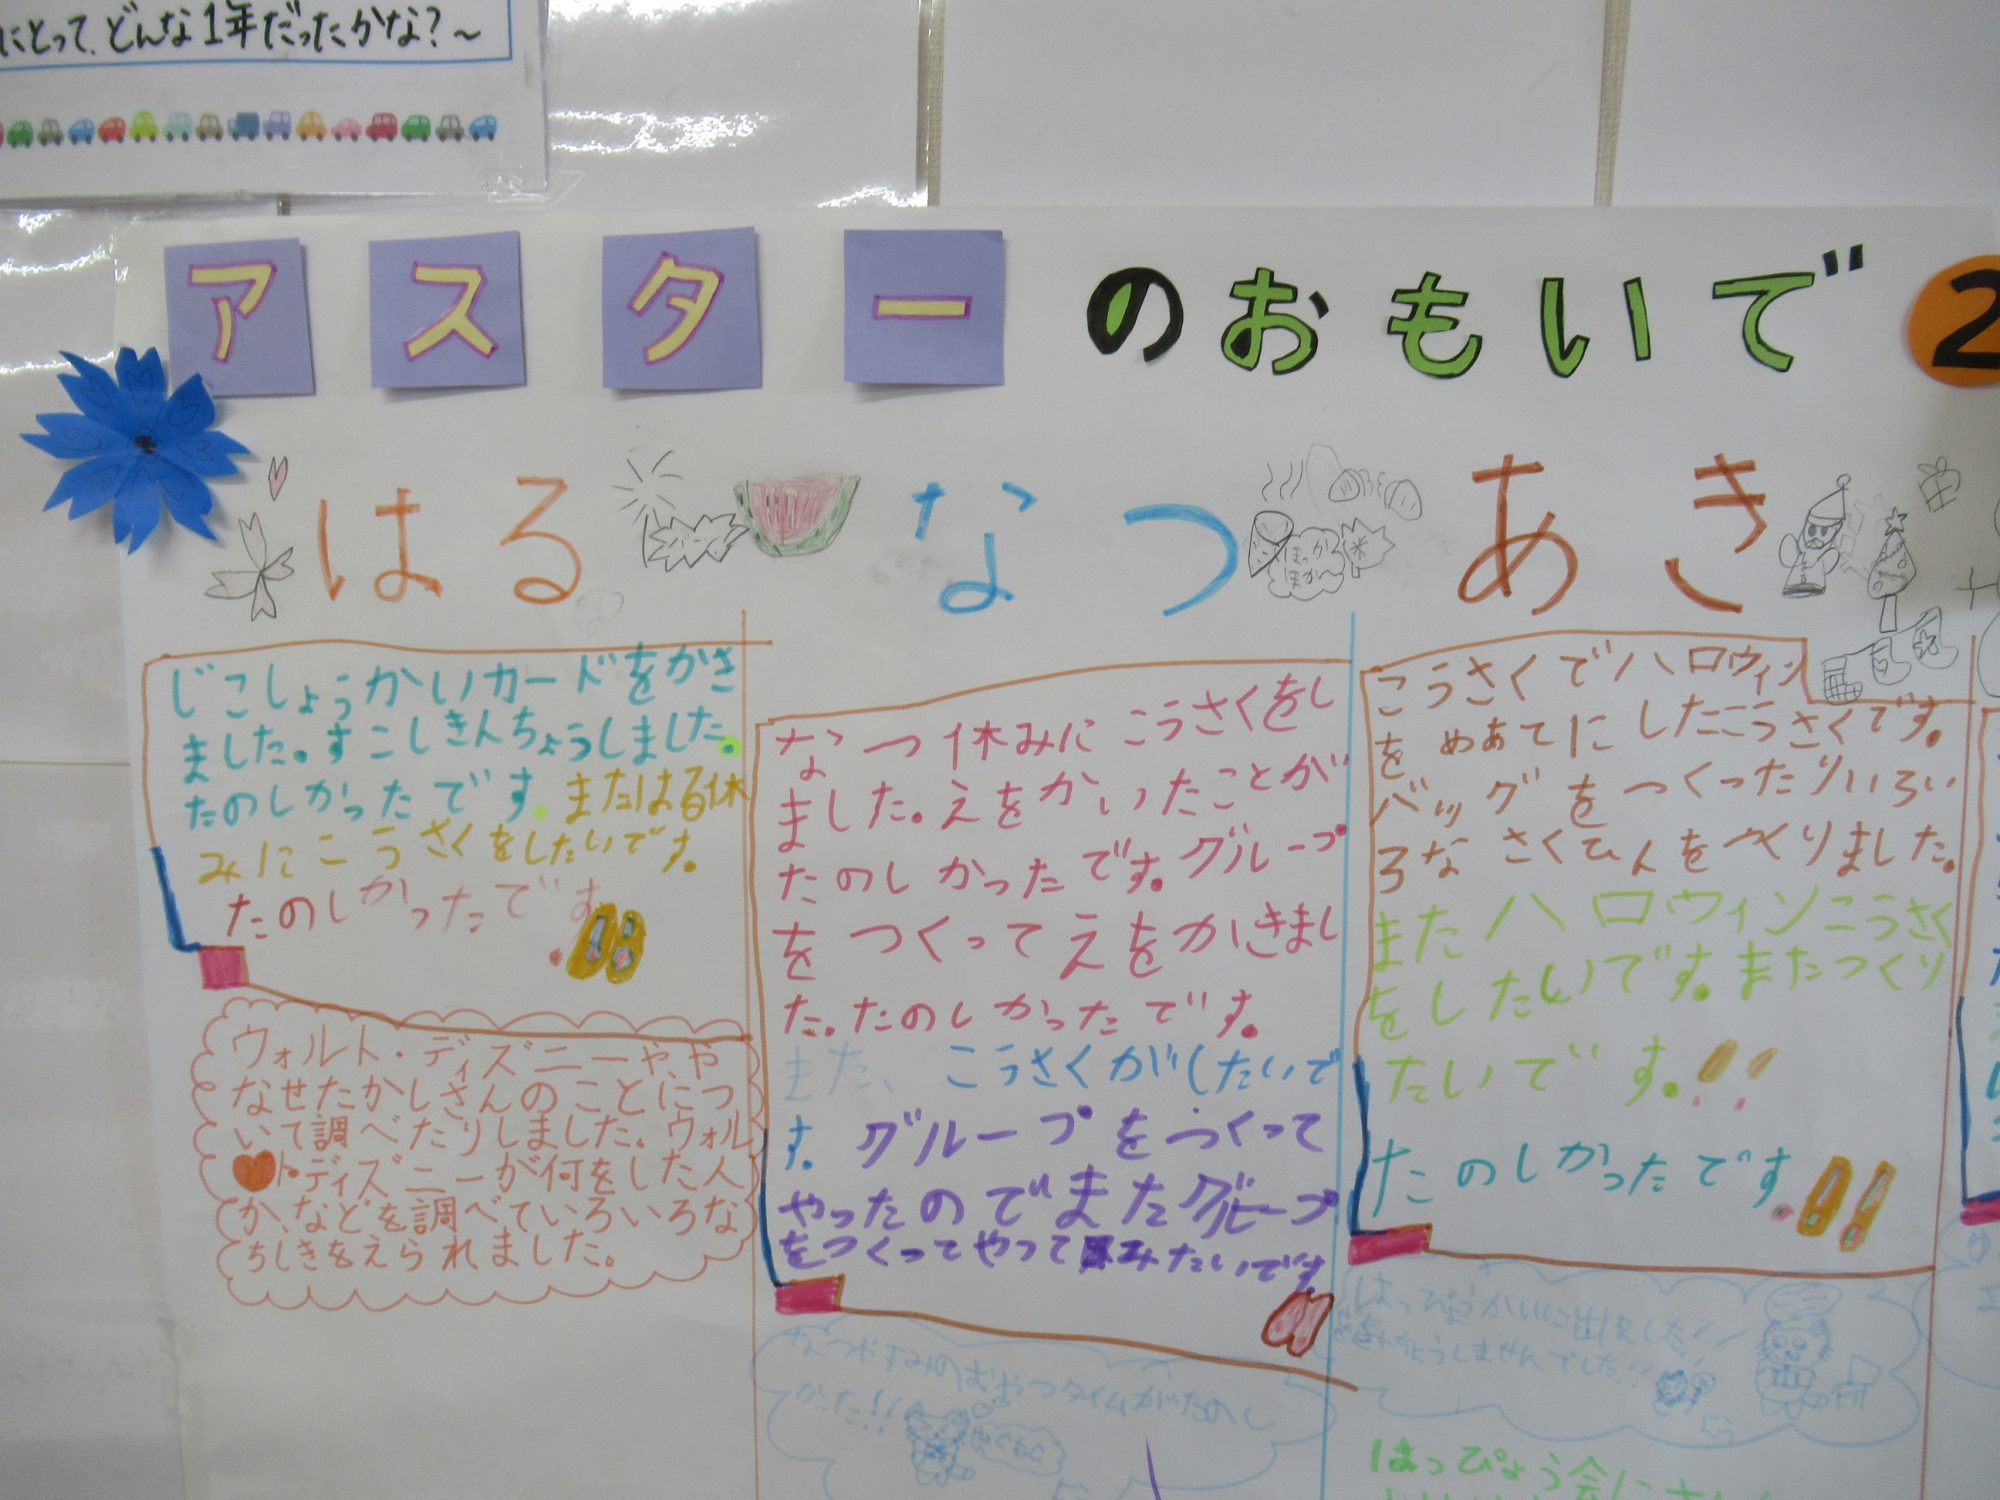 にとって、どんな1年だったかな?~
アスターのおもいで2
はる
なつ
あき
じこしょうかいカードをかき
ました。すこしきんちょうしました。
たのしかったです。またはる休
みにこうさくをしたいです。
たのしかったです
ウォルト・ディズニーや、や
なせたかしさんのことにつ
いて調べたりしました。ウォル
ト・ディズニーが何をした人
か、などを調べていろいろな
ちしきをえられました。
なつ休みにこうさくをし
ました。えをかいたことが
たのしかったです。グループ
をつくってえをかきまし
た。たのしかったです。
また、こうさくがしたいで
す。グループをつくって
やったのでまたグループ
をつくってやってみたいです
なつやすみのむちゅうタイムがたのし
かった!!
ほっか
ほか~
こうさくでハロウィン
をめあてにしたこうさくです。
バッグをつくったりいろい
ろなさくひんをつくりました。
またハロウィンこうさく
をしたいです。またつくり
たいです。!!
たのしかったです!!
はっぴょうかいに出ました!!
きんちょうしませんでした!!
はっぴょう会に